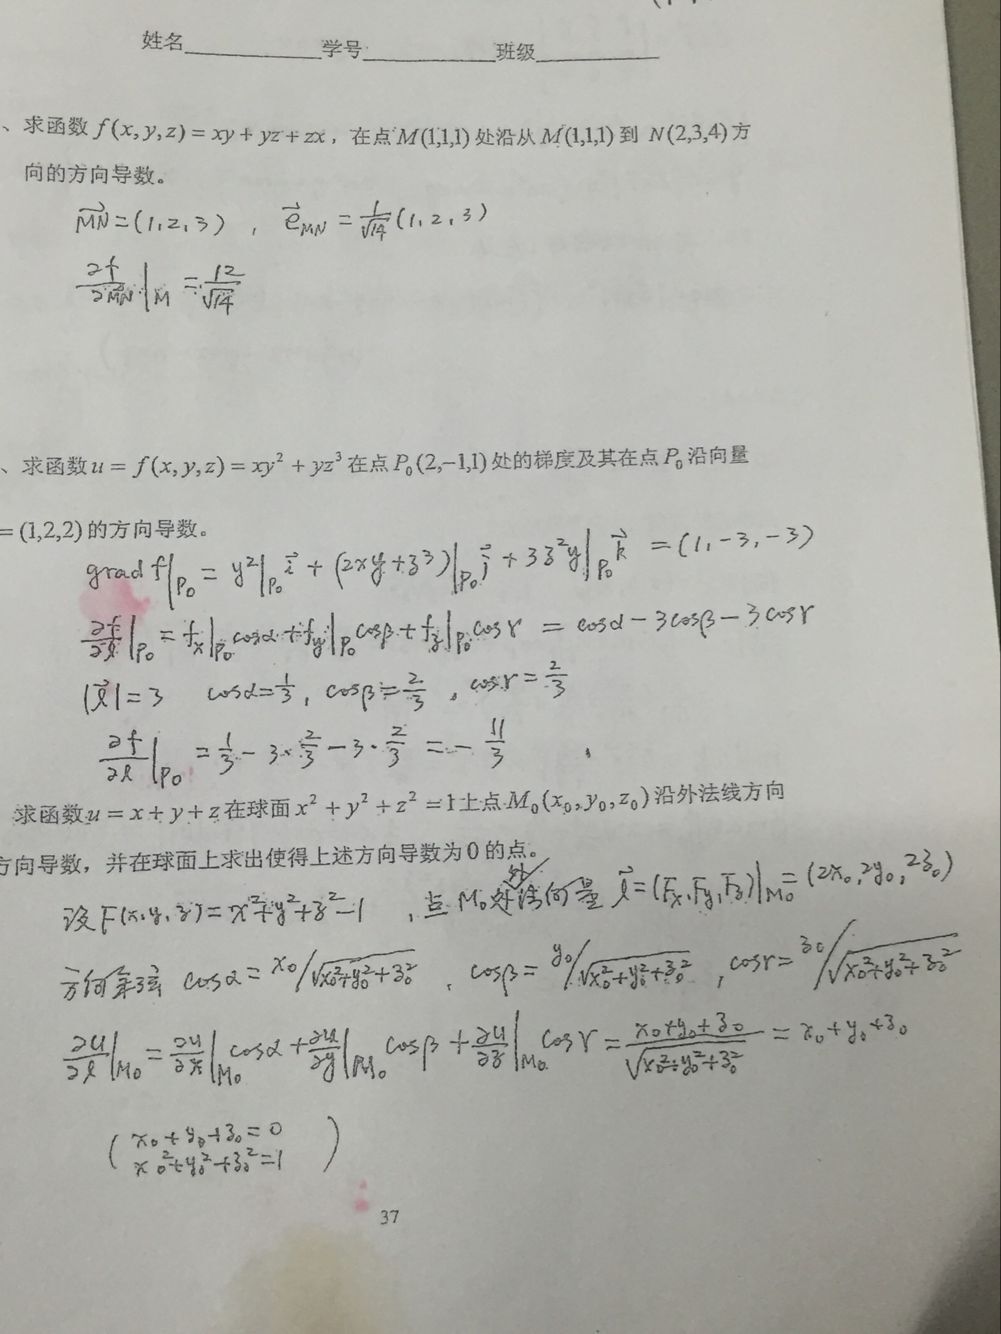 姓名____________学号____________班级____________
、求函数 f(x,y,z)=xy+yz+zx，在点M(1,1,1)处沿从M(1,1,1)到 N(2,3,4)方
向的方向导数。
$\vec{MN}$=(1,2,3)，$\vec{e}_{MN}$=$\frac{1}{\sqrt{14}}$(1,2,3)
$\frac{∂f}{∂MN}|_M$=$\frac{12}{\sqrt{14}}$
、求函数u=f(x,y,z)=xy²+yz³在点P₀(2,−1,1)处的梯度及其在点P₀沿向量
=(1,2,2)的方向导数。
grad f|_{P₀} = y²|_{P₀}$\vec{i}$ + (2xy+z³)|_{P₀}$\vec{j}$ + 3z²y|_{P₀}$\vec{k}$ =(1,-3,-3)
$\frac{∂f}{∂l}|_{P₀}$=f_x|_{P₀}cosα+f_y|_{P₀}cosβ+f_z|_{P₀}cosγ = cosα-3cosβ-3cosγ
|$\vec{l}$|=3 cosα=$\frac{1}{3}$, cosβ=$\frac{2}{3}$, cosγ=$\frac{2}{3}$
$\frac{∂f}{∂l}|_{P₀}$=$\frac{1}{3}$-3·$\frac{2}{3}$-3·$\frac{2}{3}$=-$\frac{11}{3}$
求函数u=x+y+z在球面x²+y²+z²=1上点M₀(x₀,y₀,z₀)沿外法线方向
方向导数，并在球面上求出使得上述方向导数为0的点。
设F(x,y,z)=x²+y²+z²-1，点M₀处外法向量$\vec{l}$=(F_x,F_y,F_z)|_{M₀}=(2x₀,2y₀,2z₀)
方向余弦 cosα=x₀/$\sqrt{x₀²+y₀²+z₀²}$, cosβ=y₀/$\sqrt{x₀²+y₀²+z₀²}$, cosγ=z₀/$\sqrt{x₀²+y₀²+z₀²}$
$\frac{∂u}{∂l}|_{M₀}$=$\frac{∂u}{∂x}|_{M₀}$cosα+$\frac{∂u}{∂y}|_{M₀}$cosβ+$\frac{∂u}{∂z}|_{M₀}$cosγ=$\frac{x₀+y₀+z₀}{\sqrt{x₀²+y₀²+z₀²}}$=x₀+y₀+z₀
( x₀+y₀+z₀=0
x₀²+y₀²+z₀²=1 )
37